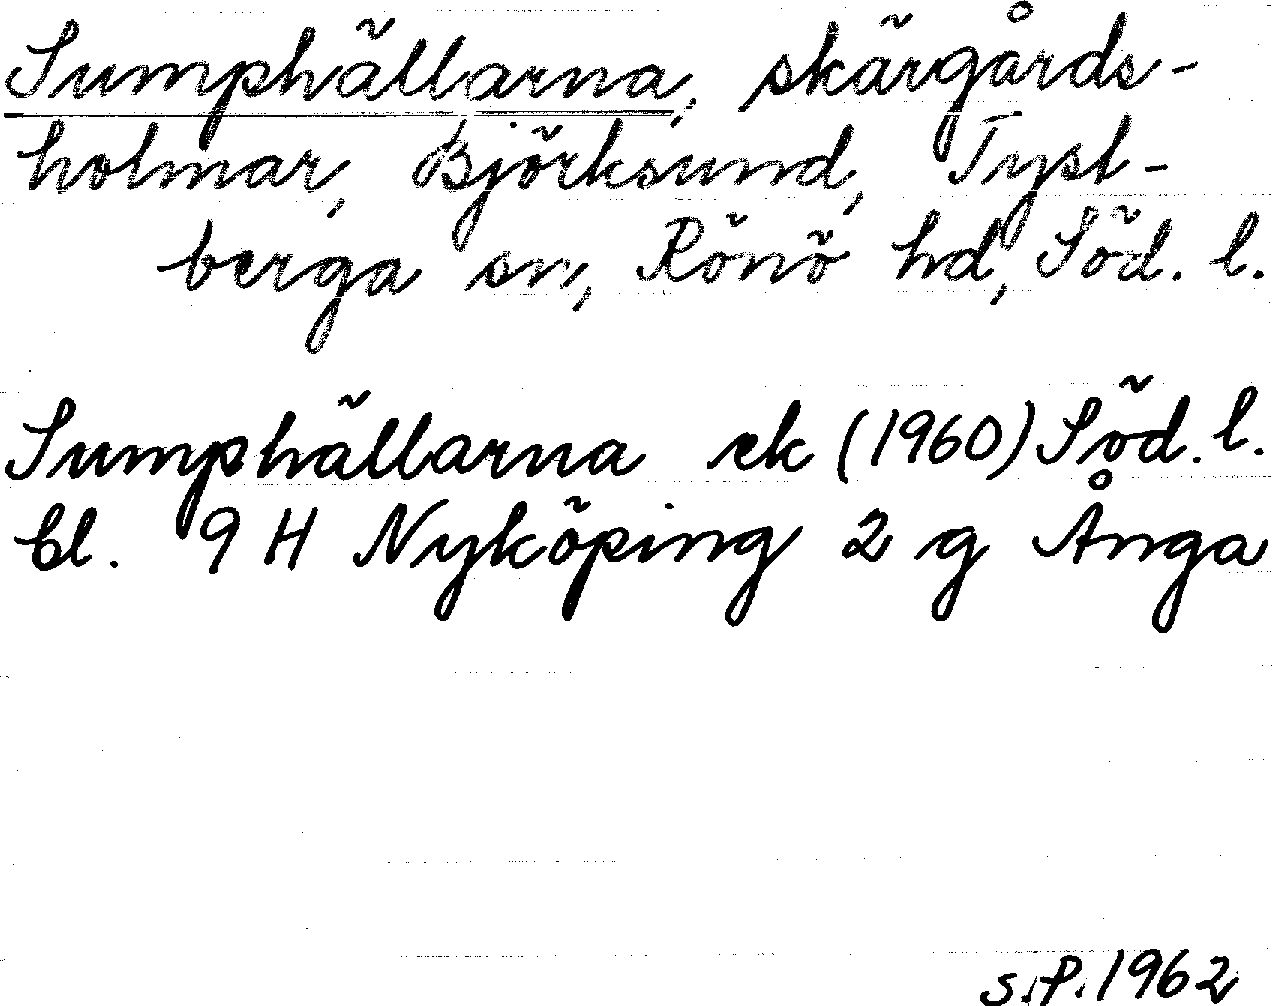 Sumphällarna, skärgårds-
holmar, Björksund, Tyst-
berga sn, Rönö hd, Söd. l.
Sumphällarna ek (1960) Söd. l.
bl. 9 H Nyköping 2 g Ånga
S.P. 1962